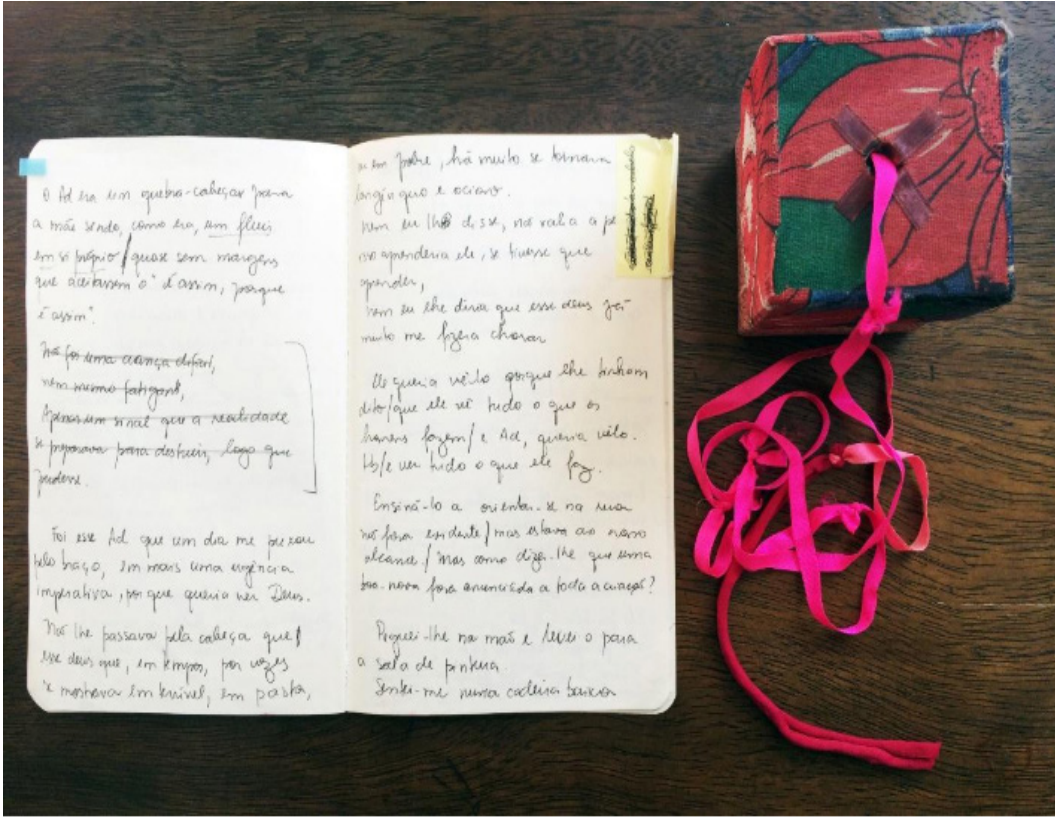 O Ad era um quebra-cabeças para
a mãe sendo, como era, um fluir
em si próprio / quase sem margens
que aceitassem o "é assim, porque
é assim".
Não foi uma criança difícil,
nem mesmo fatigante,
Apenas um sinal que a realidade
se preparava para destruir, logo que
pudesse.
Foi esse Ad que um dia me puxou
pelo braço, em mais uma urgência
imperativa, porque queria ver Deus.
Não lhe passava pela cabeça que
esse deus que, em tempos, por vezes
se mostrava em
ou em pobre, há muito se tornara
longínquo e ocioso.
nem eu lho disse, não valia a pe
isso aprenderia ele, se tivesse que
aprender,
nem eu lhe diria que esse deus já
muito me fizera chorar
Ele queria vê-lo porque lhe tinham
dito / que ele vê tudo o que os
homens fazem / e Ad, queria vê-lo.
e ver tudo o que ele faz.
Ensiná-lo a orientar-se na rua
não fora evidente / mas estava ao nosso
alcance / Mas como dizer-lhe que uma
boa-nova fora anunciada a toda a criação?
Peguei-lhe na mão e levei-o para
a sala de pintura.
Sentei-me numa cadeira baixa